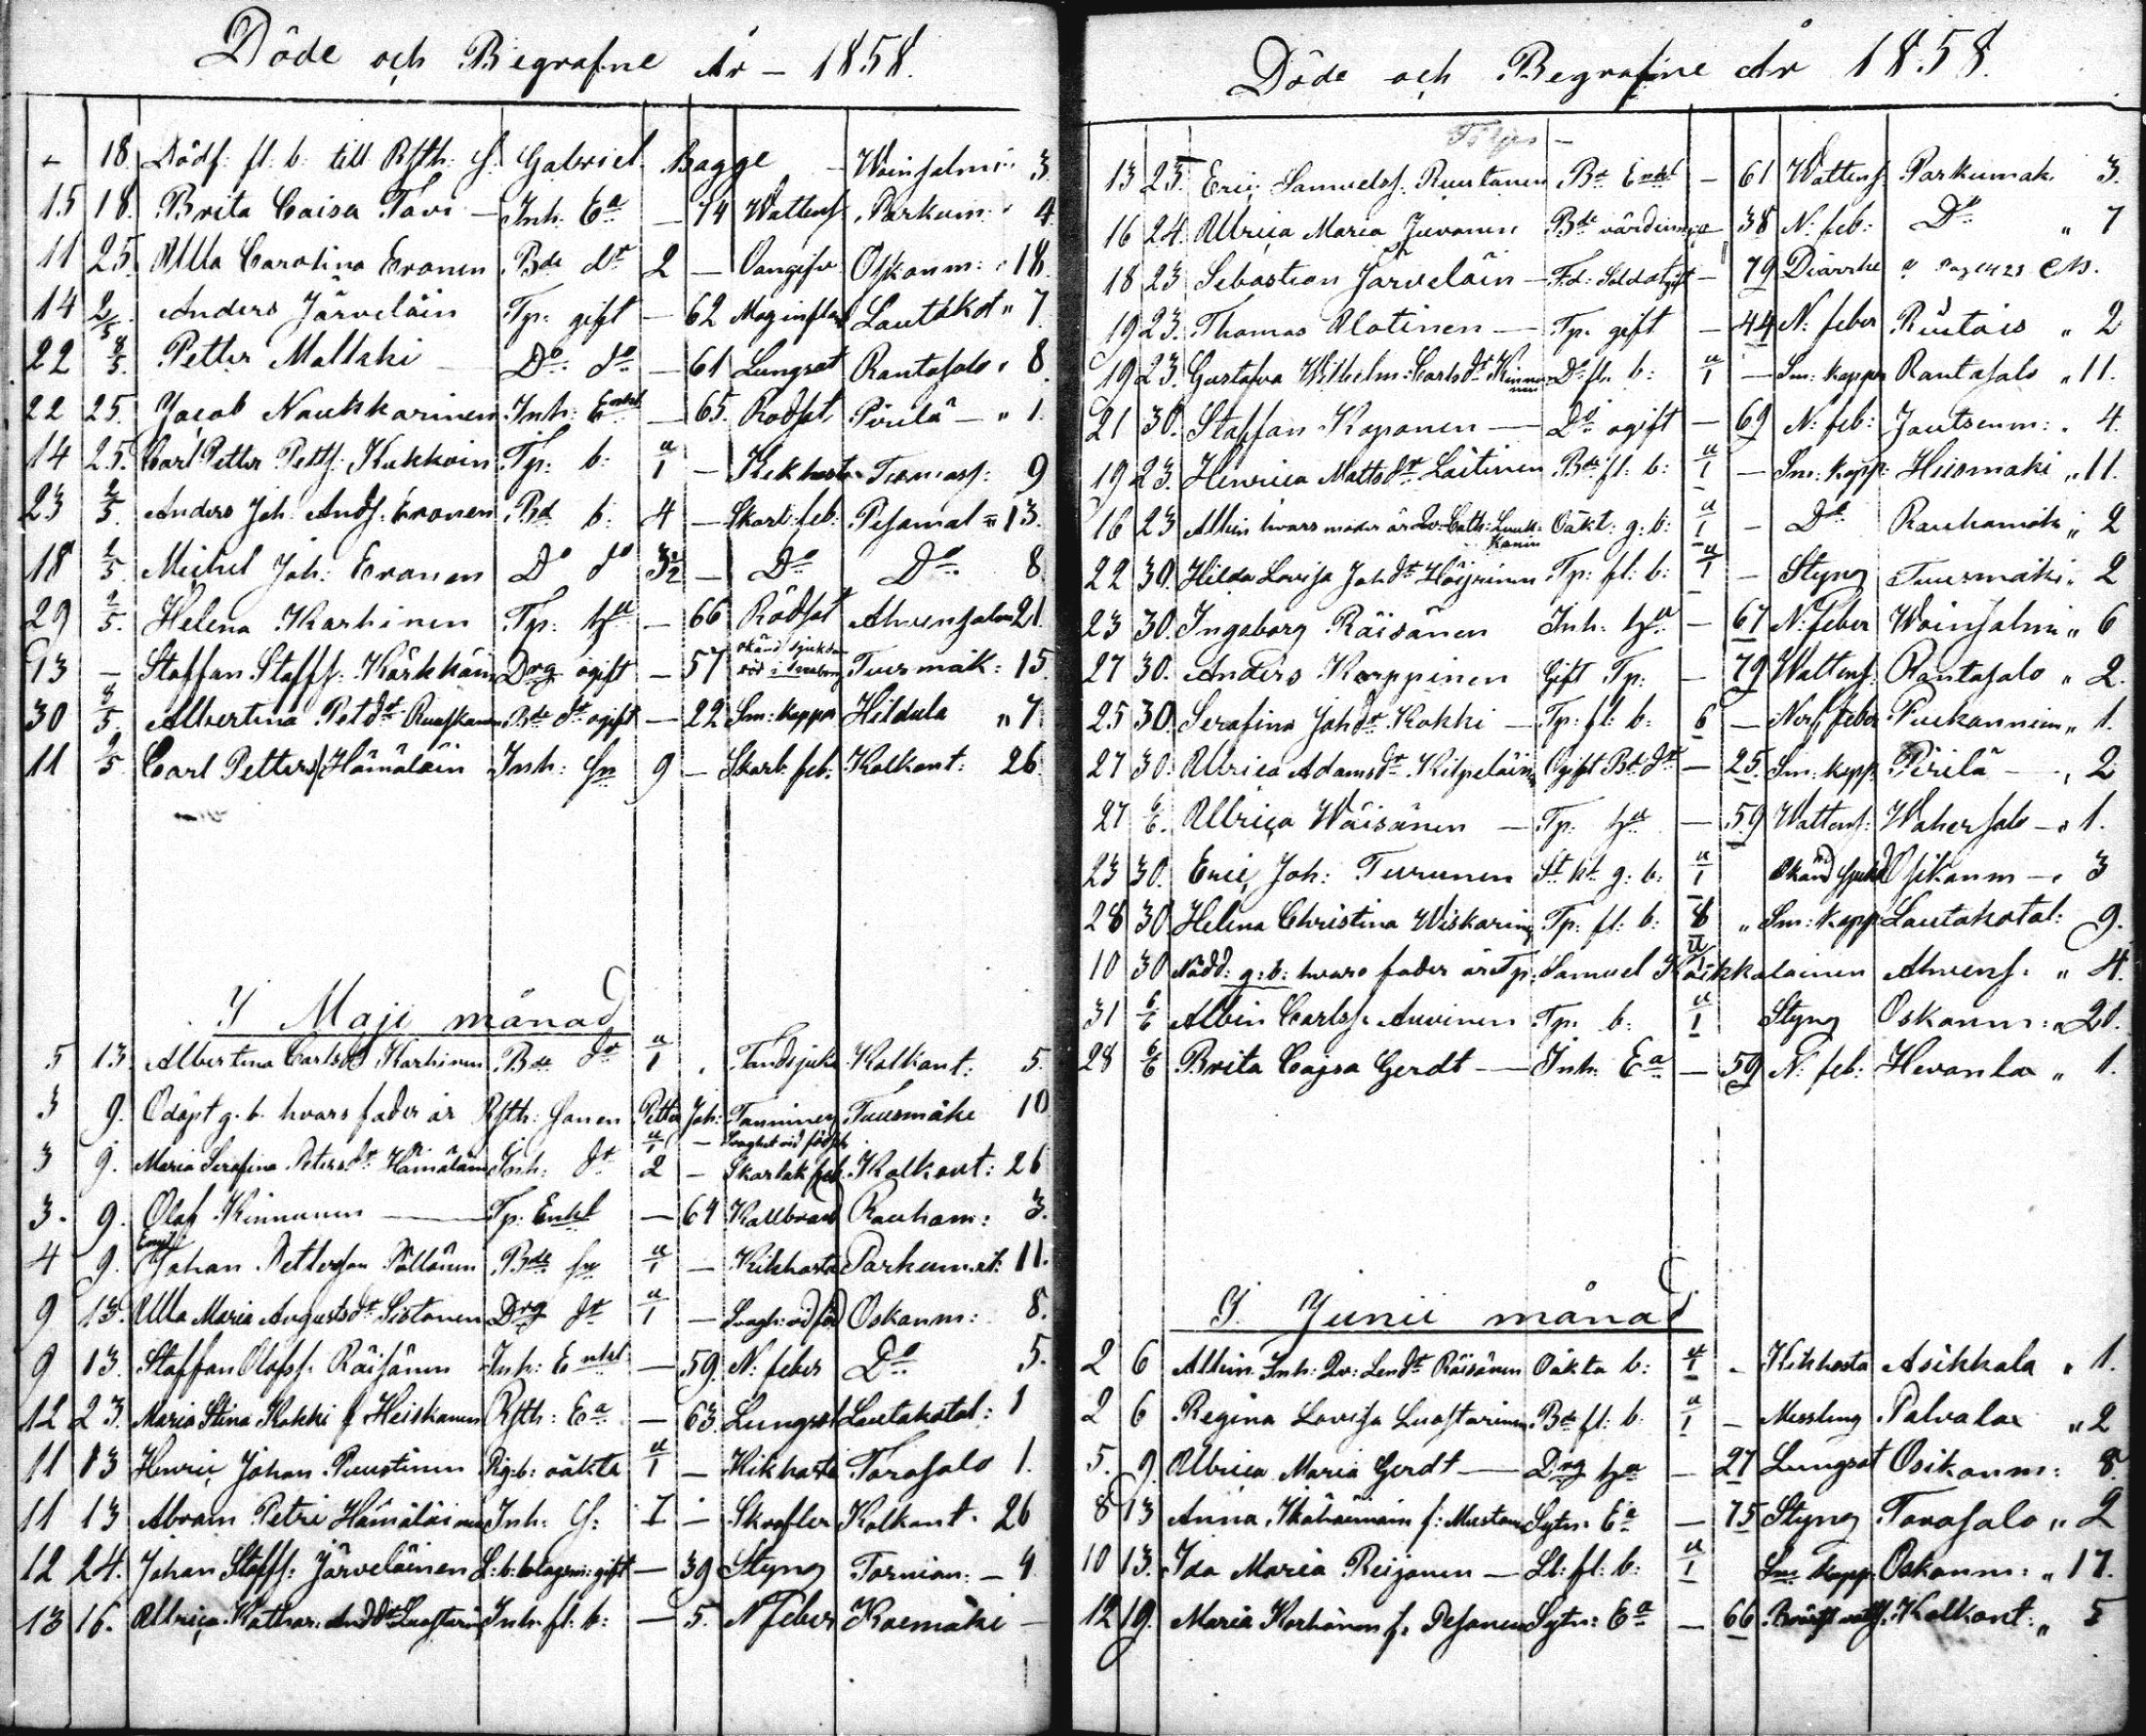 Döde och Begrafne År - 1858.
- 18. Dödf: fl: b: till Rsth: S. Gabriel Bagge - Woinsalmi " 3
15 18. Brita Caisa Tavi - Inh: Ea - 74 Wattens. Parkum: " 4
11 25. Ulla Carolina Eronen Bde dr 2 - Oangifv Oskanm: " 18
14 2/5. Anders Järveläin Tp: gift - 62 Maginflam Lautakot " 7
22 8/5. Petter Maltkki - Do do - 61 Lungsot Rantasalo " 8
22 25. Jacob Naukkarinen Inh: Enkl - 65. Rödsot Pirilä - " 1.
14 25. Carl Petter Petts: Kukkoin Tp: b: u/1 - Kikhosta Tuomas: 9
23 2/5. Anders Joh. Ands. Eronen Bd b: 4 - Skarl: feb: Pesamal " 13.
18 2/5 Michel Joh: Eronen Do do 3½ - Do Do 8
29 2/5. Helena Karhinen Tp: ha - 66 Rödsot Ahvensalm 21
13 - Staffan Staffs: Kärkkäin Drg ogift - 57 okänd sjukdom Tuusmäk: 15
30 8/5. Albertina Petdr Ruuskanen Bde dr ogift - 22 Sm: koppor Hildula " 7
11 2/5 Carl Petters. Hämäläin Inh: Sn 9 - Skarl. feb. Kolkont: 26
I Maji månad
5 13. Albertina Carlsdr Karhinen Bde dr u/1 " Tandsjuka Kolkont: 5.
3 9. Odöpt g. b. hvars fader är Rsth: Sonen Petter Joh: Tanninen Tuusmäke 10
3 9. Maria Serafina Petersdr Hämäläinen Inh: dr 2 - Svaghet vid födsel Skarlak feb. Kolkont: 26
3. 9. Olof Kinnunen - Tp: Enkl - 64 Kallbrand Rauham: 3.
4 9. Johan Petterson Pöllänen Bde Sn u/1 - Kikhosta Parkumäk: 11.
9 13. Ulla Maria Augustsdr Sistonen Drg dr u/1 - Svagh: vid föd Oskanm: 8.
9 13 Staffan Olofss. Räisänen Inh: Enkl - 59. N: feber Do 5.
12 23. Maria Stina Kokki f Heiskanen Rsth: Ea - 63. Lungsot Lautakotal: 1
11 13 Henric Johan Puustinen Pig: b: oäkta u/1 - Kikhosta Torasalo 1.
11 13 Abram Petri Hämäläinen Inh: S: 1 - Skrofler Kolkont. 26
12 24. Johan Staffs: Järveläinen gift - 39 Styng Tornian: - 4
13 16. Ulrica Kathar: Anddr Luostarin Inh. fl: b: - 5. N feber Koemäki -
Döde och Begrafne År 1858.
13 23. Eric Samuelss. Ruutanen Bd Enkl - 61 Wattens. Parkumäk. 3.
16 24. Ulrica Maria Juvonen Bde värdinna - 38 N: feb: Do " 7
18 23 Sebastian Järveläin - F.d: Soldat gift - 79 Diarrhe
19 23. Thomas Olotinen - Tp. gift - 44 N: feber Ruutais " 2
19 23. Gustafva Wilhelm: Carlsdr Kinnunen Do fl: b: u/1 - Sm: koppor Rantasalo " 11.
21 30. Staffan Koponen - Do ogift - 69 N: feb: Joutsenm: " 4.
19 23. Henrica Mattsdr Laitinen Bde fl: b: u/1 - Sm: kopp: Heismäki " 11.
16 23 Albin hvars moder är Qv: Cath: Luukkanin Oäkt: g: b: u/1 - Do Rauhamäki " 2
22 30. Hilda Lovisa Johdr Höijrinen Tp: fl: b: u/1 - Styng Tuusmäki " 2
23 30. Ingeborg Räisänen Inh: ha - 67 N: feber Woinsalmi " 6
27 30. Anders Korppinen Gift Tp: - 79 Wattens. Rantasalo " 2.
25 30. Serafina Johdr Kokki - Tp: fl: b: 6 - Nerf feber Puckanniem " 1.
27 30. Ulrica Adamsdr Kilpeläin Ogift Bd: dr - 25. Sm: kopp. Pirilä - " 2
27 6/6. Ulrica Wäisänen - Tp: ha - 59 Wattens. Wahersalo - " 1.
23 30. Eric Joh: Turunen g: b: u/1 Okänd sjukd Osikanm - " 3
28 30. Helena Christina Wiskarin Tp: fl: b: 8 " Sm: kopp. Lautakotal: 9.
10 30 Nödd: g: b: hvars fader är Tp: Samuel Kaikkalainen Ahvens. " 4.
31 6/6 Albin Carlss. Auvinen Tp: b: u/1 Styng Oskanm: " 20.
28 6/6 Brita Cajsa Gerdt - Inh: Ea - 59 N: feb: Hevonla " 1.
I. Junii månad
2 6 Albin Inh: Qv: Lendr Räisänen Oäkta b: u/1 - Kikhosta Asikkala " 1.
2 6 Regina Lovisa Luostarinen Bd fl: b: u/1 - Messling Palvala " 2
5. 9. Ulrica Maria Gerdt - Drg ha - 27 Lungsot Osikanm: 8.
8 13 Anna Ikäheimoin f: Muston Sytn: Ea - 75 Styng Torasalo " 2
10 13. Ida Maria Reijonen - Sl: fl: b: u/1 Sm kopp: Oskanm: " 17.
12 19. Maria Korhonen f: Pesonen Sytn: Ea - 66 Kolkont: " 5